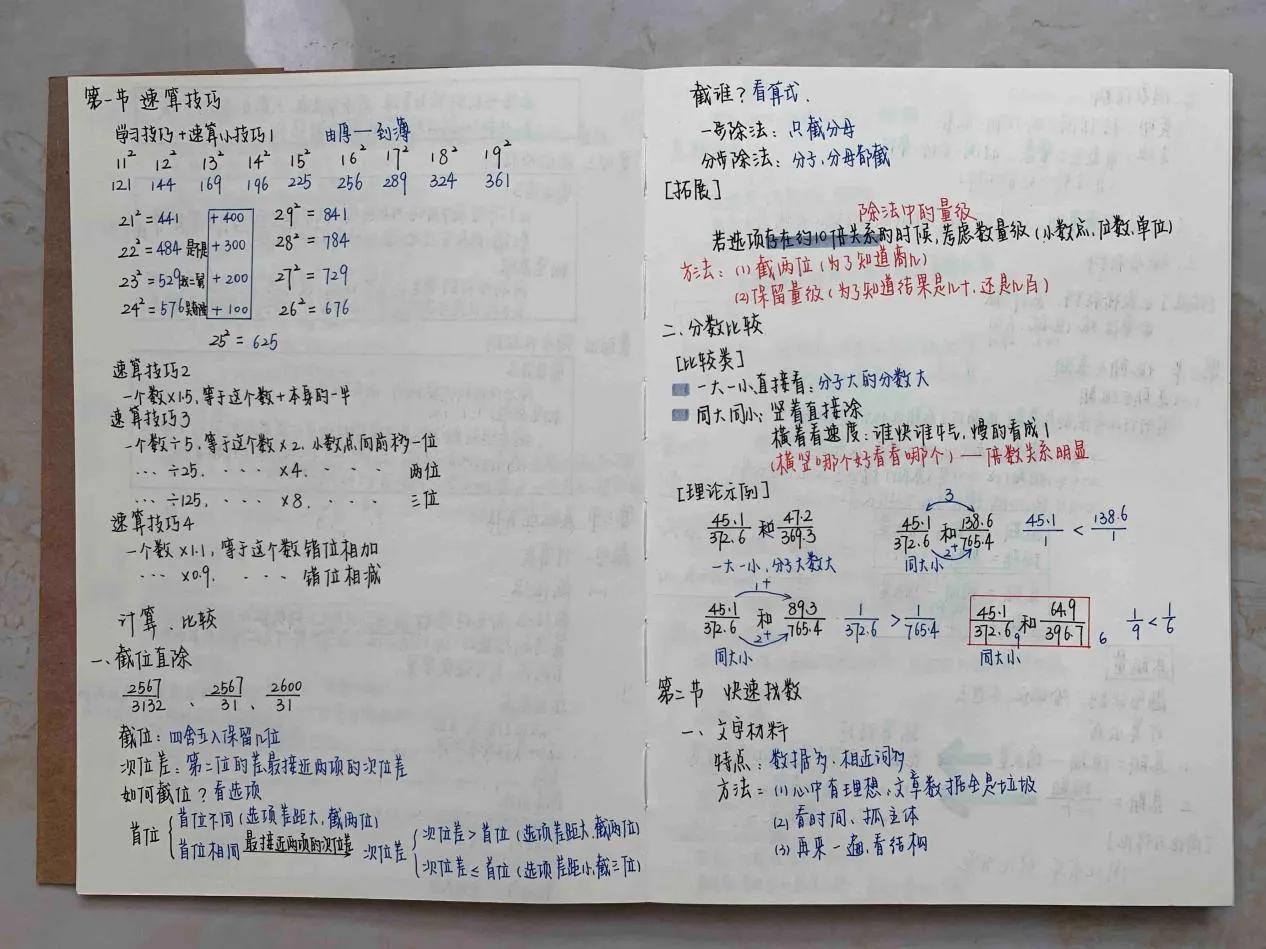 第一节 速算技巧
学习技巧+速算小技巧1 由厚一到薄
11² 12² 13² 14² 15² 16² 17² 18² 19²
121 144 169 196 225 256 289 324 361
21²=441 +400 29²=841
22²=484 +300 28²=784
23²=529 +200 27²=729
24²=576 +100 26²=676
25²=625
速算技巧2
一个数×1.5,等于这个数+本身的一半
速算技巧3
一个数÷5,等于这个数×2.小数点向前移一位
… ÷25. · · · ×4. · · · 两位
… ÷125. · · · ×8. · · · 三位
速算技巧4
一个数×1.1,等于这个数错位相加
… ×0.9. · · · 错位相减
计算、比较
一、截位直除
2567/3132 、 2567/31 、 2600/31
截位:四舍五入保留几位
次位差:第二位的差最接近两项的次位差
如何截位?看选项
首位 { 首位不同(选项差距大,截两位)
首位相同 最接近两项的次位差 次位差 { 次位差>首位(选项差距大,截两位)
次位差≤首位(选项差距小,截三位)
截谁?看算式.
一步除法:只截分母
分步除法:分子,分母都截
[拓展]
除法中的量级
若选项存在约10倍关系的时候,考虑数量级(小数点,位数,单位)
方法:(1)截两位(为了知道商几)
(2)保留量级(为了知道结果是几十,还是几百)
二.分数比较
[比较类]
一大一小直接看:分子大的分数大
同大同小:竖着直接除
横着看速度:谁快谁牛,慢的看成1
(横竖哪个好看看哪个)——倍数关系明显
[理论示例]
3
45.1/372.6 和 47.2/369.3 45.1/372.6 和 138.6/765.4 45.1/1 < 138.6/1
2+
一大一小,分子大数大 同大小
1+
45.1/372.6 和 89.3/765.4 1/372.6 > 1/765.4 45.1/372.6 9 和 64.9/396.7 6 1/9 < 1/6
2+
同大小 同大小
第二节 快速找数
一、文字材料
特点:数据多.相近词多
方法=(1)心中有理想、文章数据全是垃圾
(2)看时间、抓主体
(3)再来一遍,看结构